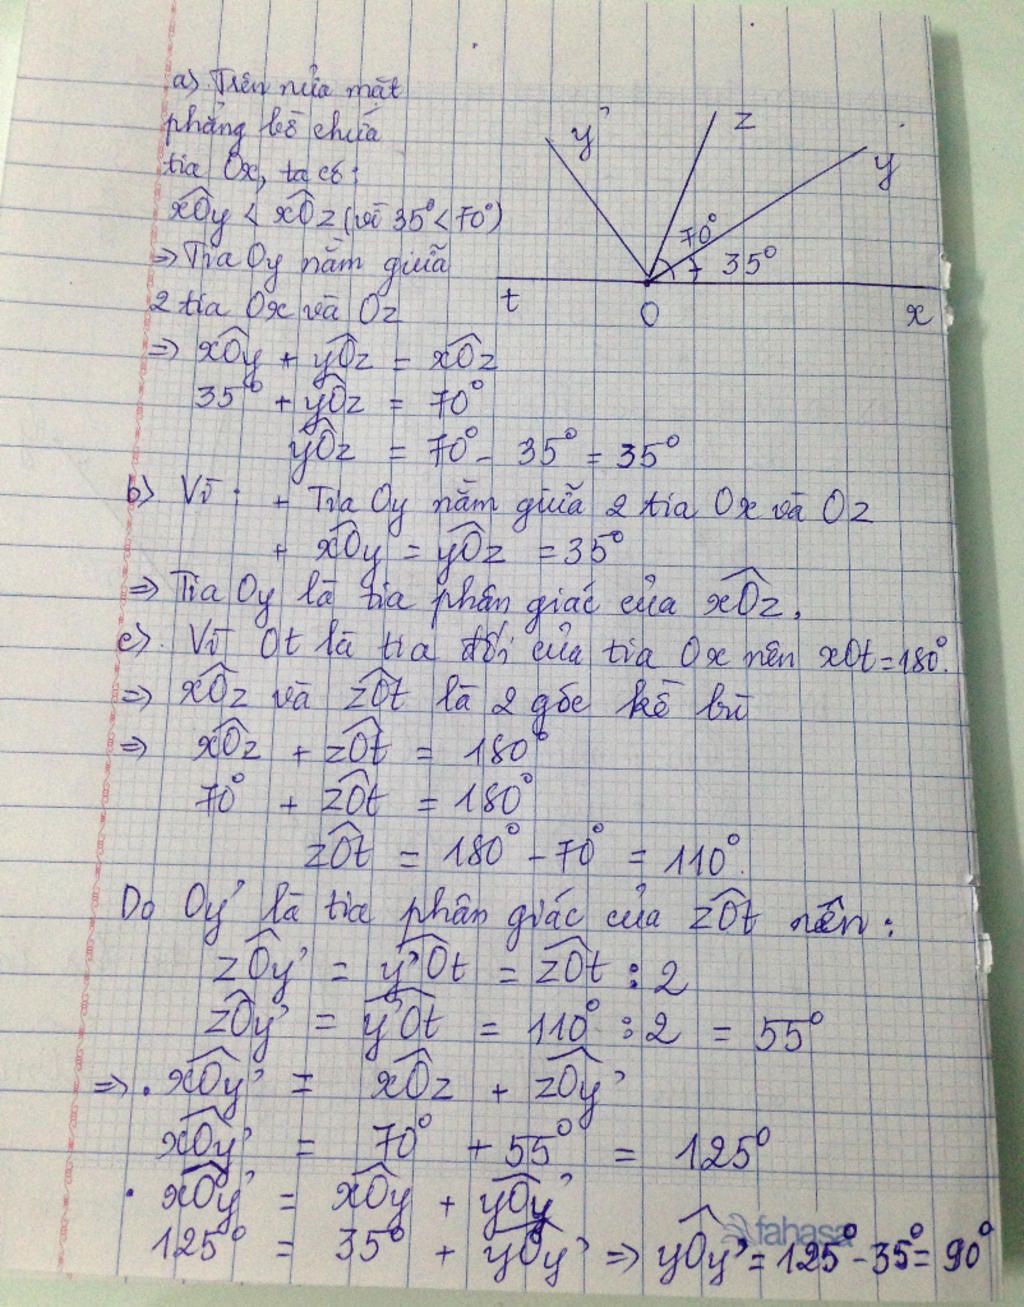 a) Trên nửa mặt
phẳng bờ chứa
tia Ox, ta có:
xÔy < xÔz (vì 35° < 70°)
=> Tia Oy nằm giữa
2 tia Ox và Oz
y'
z
y
70°
35°
t
O
x
=> xÔy + yÔz = xÔz
35° + yÔz = 70°
yÔz = 70° - 35° = 35°
b) Vì: + Tia Oy nằm giữa 2 tia Ox và Oz
+ xÔy = yÔz = 35°
=> Tia Oy là tia phân giác của xÔz.
c). Vì Ot là tia đối của tia Ox nên xOt = 180°.
=> xÔz và zÔt là 2 góc kề bù
=> xÔz + zÔt = 180°
70° + zÔt = 180°
zÔt = 180° - 70° = 110°.
Do Oy' là tia phân giác của zÔt nên:
zÔy' = y'Ôt = zÔt : 2
zÔy' = y'Ôt = 110° : 2 = 55°
=> . xÔy' = xÔz + zÔy'
xÔy' = 70° + 55° = 125°
. xÔy' = xÔy + yÔy'
125° = 35° + yÔy' => yÔy' = 125° - 35° = 90°
fahasa